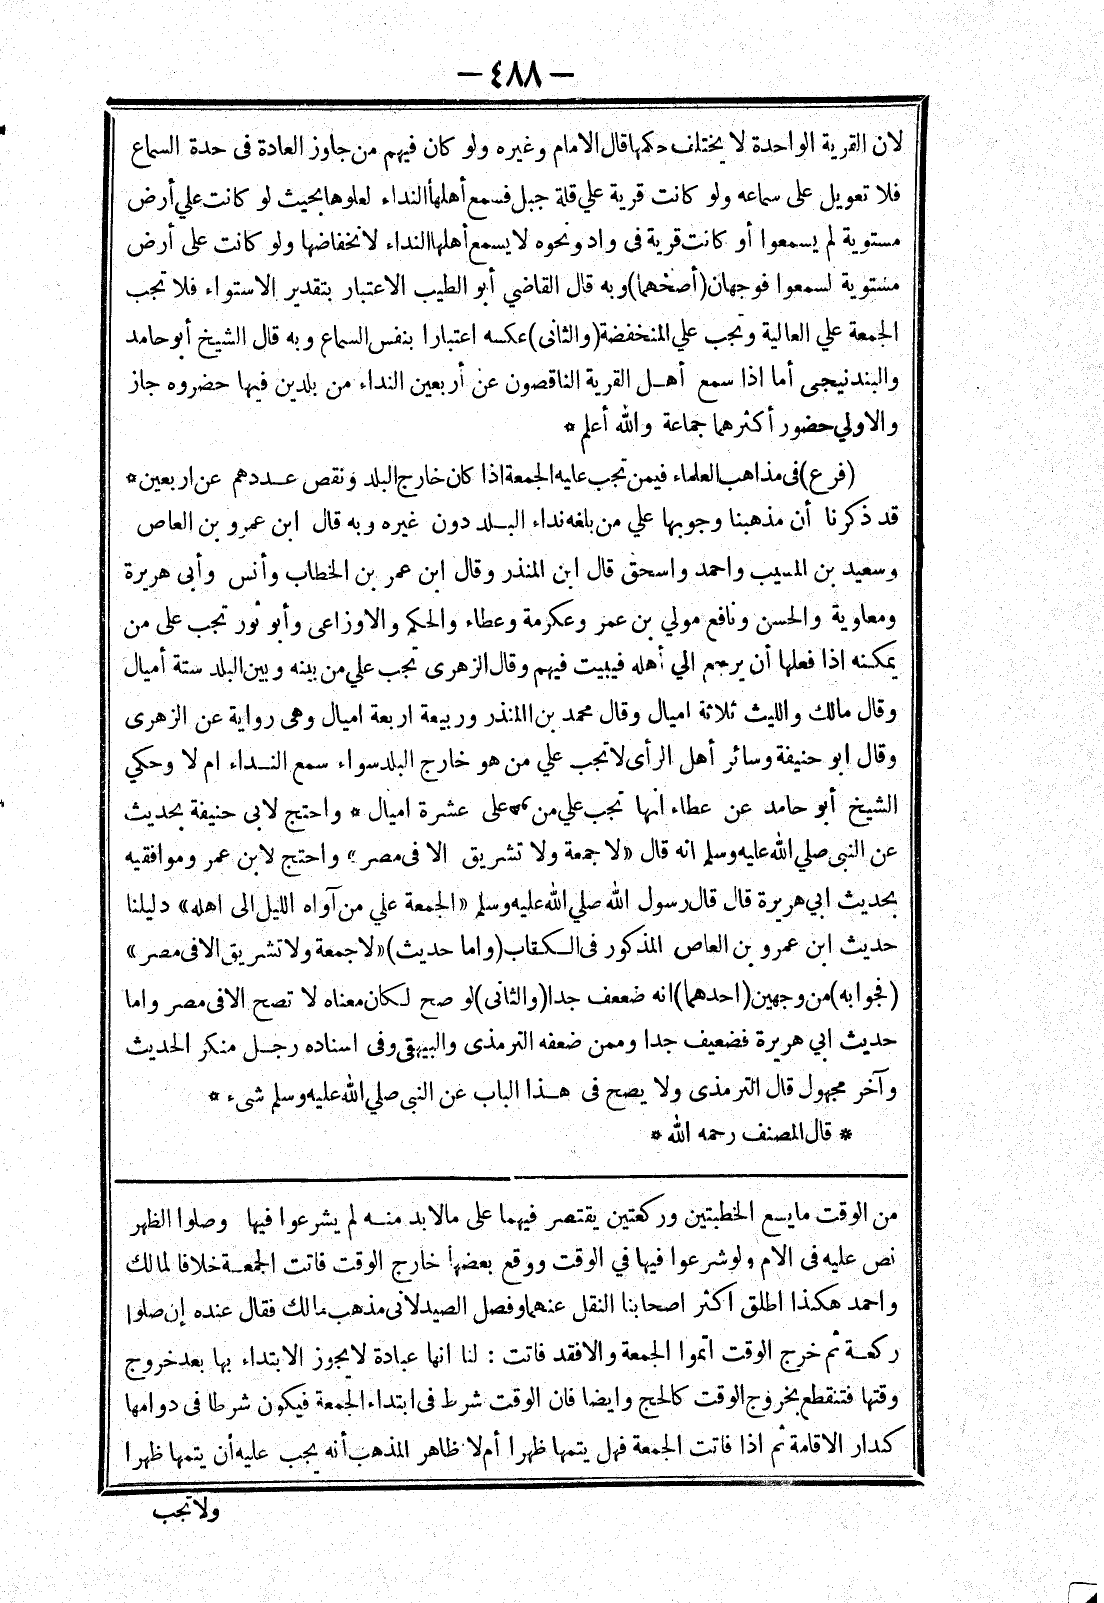 — ٤٨٨ —
لان القرية الواحدة لا يختلف حكمها قال الامام وغيره ولو كان فيهم من جاوز العادة فى حدة السماع
فلا تعويل على سماعه ولو كانت قرية علي قلة جبل فسمع أهلها النداء لعلوها بحيث لو كانت علي أرض
مستوية لم يسمعوا أو كانت قرية فى واد ونحوه لا يسمع أهلها النداء لانخفاضها ولو كانت على أرض
مستوية لسمعوا فوجهان (أصحهما) وبه قال القاضي أبو الطيب الاعتبار بتقدير الاستواء فلا تجب
الجمعة علي العالية وتجب علي المنخفضة (والثانى) عكسه اعتبارا بنفس السماع وبه قال الشيخ أبو حامد
والبندنيجى أما اذا سمع أهل القرية الناقصون عن أربعين النداء من بلدين فيها حضروه جاز
والاولي حضور أكثرهما جماعة والله أعلم *
(فرع) فى مذاهب العلماء فيمن تجب عليه الجمعة اذا كان خارج البلد ونقص عددهم عن اربعين *
قد ذكرنا أن مذهبنا وجوبها علي من بلغه نداء البلد دون غيره وبه قال ابن عمرو بن العاص
وسعيد بن المسيب واحمد واسحق قال ابن المنذر وقال ابن عمر بن الخطاب وأنس وأبى هريرة
ومعاوية والحسن ونافع مولي بن عمر وعكرمة وعطاء والحكم والاوزاعى وأبو ثور تجب على من
يمكنه اذا فعلها أن يرجع الي أهله فيبيت فيهم وقال الزهرى تجب علي من بينه وبين البلد ستة أميال
وقال مالك والليث ثلاثة اميال وقال محمد بن المنذر وربيعة اربعة اميال وهى رواية عن الزهرى
وقال ابو حنيفة وسائر أهل الرأى لا تجب علي من هو خارج البلد سواء سمع النداء ام لا وحكي
الشيخ أبو حامد عن عطاء انها تجب علي من على عشرة اميال * واحتج لابى حنيفة بحديث
عن النبى صلي الله عليه وسلم انه قال «لا جمعة ولا تشريق الا فى مصر» واحتج لابن عمر وموافقيه
بحديث ابي هريرة قال قال رسول الله صلي الله عليه وسلم «الجمعة علي من آواه الليل الى اهله» دليلنا
حديث ابن عمرو بن العاص المذكور فى الكتاب (واما حديث) «لا جمعة ولا تشريق الا فى مصر»
(فجوابه) من وجهين (احدهما) انه ضعيف جدا (والثانى) لو صح لكان معناه لا تصح الا فى مصر واما
حديث ابي هريرة فضعيف جدا وممن ضعفه الترمذى والبيهقى وفى اسناده رجل منكر الحديث
وآخر مجهول قال الترمذى ولا يصح فى هذا الباب عن النبى صلي الله عليه وسلم شىء *
* قال المصنف رحمه الله *
من الوقت ما يسع الخطبتين وركعتين يقتصر فيهما على ما لا بد منه لم يشرعوا فيها وصلوا الظهر
نص عليه فى الام ولو شرعوا فيها في الوقت ووقع بعضها خارج الوقت فاتت الجمعة خلافا لمالك
واحمد هكذا اطلق اكثر اصحابنا النقل عنهما وفصل الصيدلانى مذهب مالك فقال عنده إن صلوا
ركعة ثم خرج الوقت اتموا الجمعة والا فقد فاتت : لنا انها عبادة لا يجوز الابتداء بها بعد خروج
وقتها فتنقطع بخروج الوقت كالحج وايضا فان الوقت شرط فى ابتداء الجمعة فيكون شرطا فى دوامها
كدار الاقامة ثم اذا فاتت الجمعة فهل يتمها ظهرا أم لا ظاهر المذهب أنه يجب عليه أن يتمها ظهرا
ولا تجب